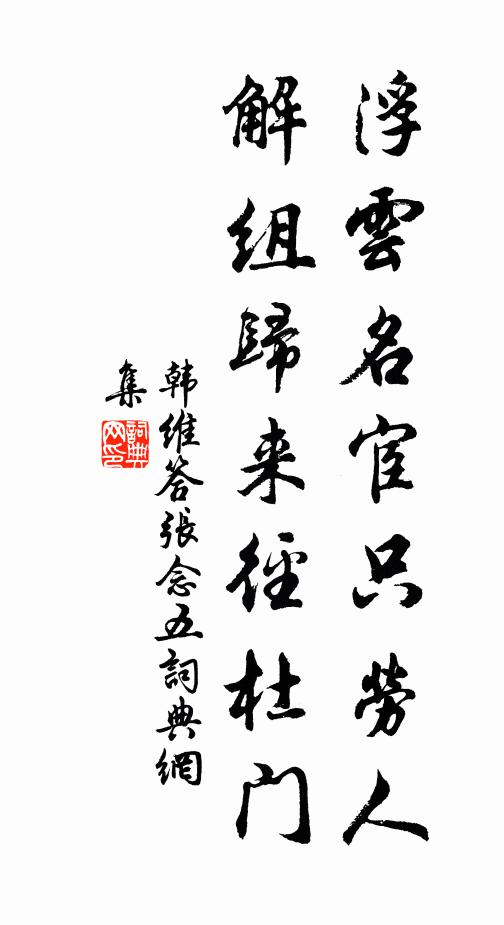 浮雲名宦只勞人
解組歸来徑杜門
韩維答張念五詞典網
集
詞典网印